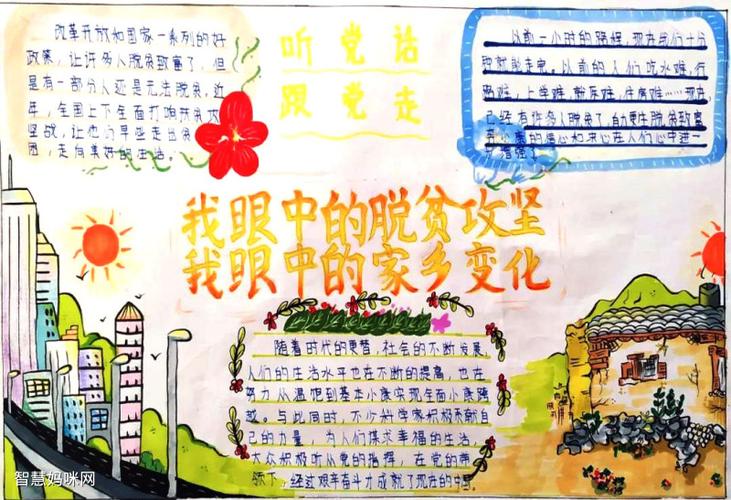 听党话
跟党走
改革开放和国家一系列的好
政策，让许多人脱贫致富了，但
是有一部分人还是无法脱贫，近
年，全国上下全面打响脱贫攻
坚战，让他们早些走出贫
困，走向美好的生活。
以前一小时的路程，现在我们十分
钟就能走完。以前的人们吃水难，行
路难，上学难，就医难，住房难……现在，
已经有许多人脱贫了，自力更生脱贫致富
奔小康的信心和决心在人们心中进一
步增强了
我眼中的脱贫攻坚
我眼中的家乡变化
随着时代的更替，社会的不断发展，
人们的生活水平也在不断的提高，也在
努力从温饱到基本小康实现全面小康跨
越。与此同时，不少科学家积极贡献自
己的力量，为人们谋求幸福的生活，
大众积极听从党的指挥，在党的带
领下，经过艰辛奋斗才成就了现在的中国
智慧妈咪网